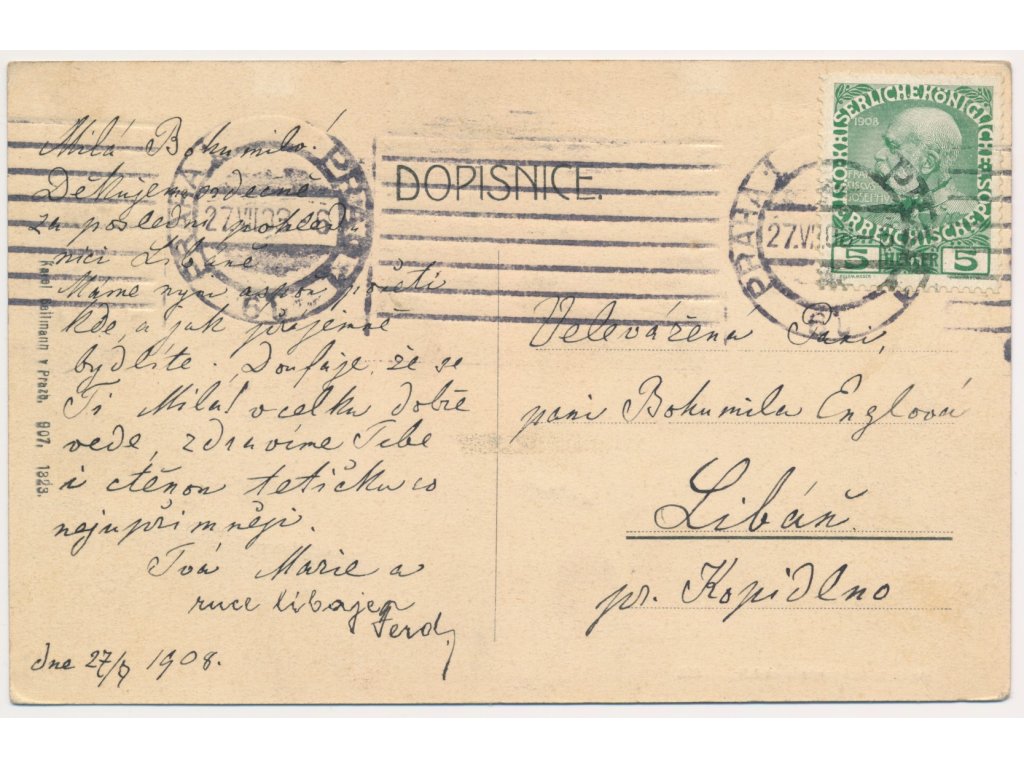 Milá Bohumilo!
Děkujeme srdečně
za poslední pohled
nici Libáně
Máme nyní aspoň početi
kde a jak příjemně
bydlíte. Doufáje, že se
Ti Milá! v celku dobře
vede, zdravíme Tebe
i ctěnou tetičku co
nejupřimněji.
Tvá Marie a
ruce líbající
Ferd.
dne 27/7 1908.
Karel Bellmann v Praze, 907, 1823.
PRAHA 1
27.VII.08
DOPISNICE.
PRAHA 1
27.VII.08
KAISERLICHE KÖNIGLICHE
ÖSTERREICHISCHE POST
1908
5 HELLER 5
Velevážená Paní,
paní Bohumila Englová
Libáň
pr. Kopidlno